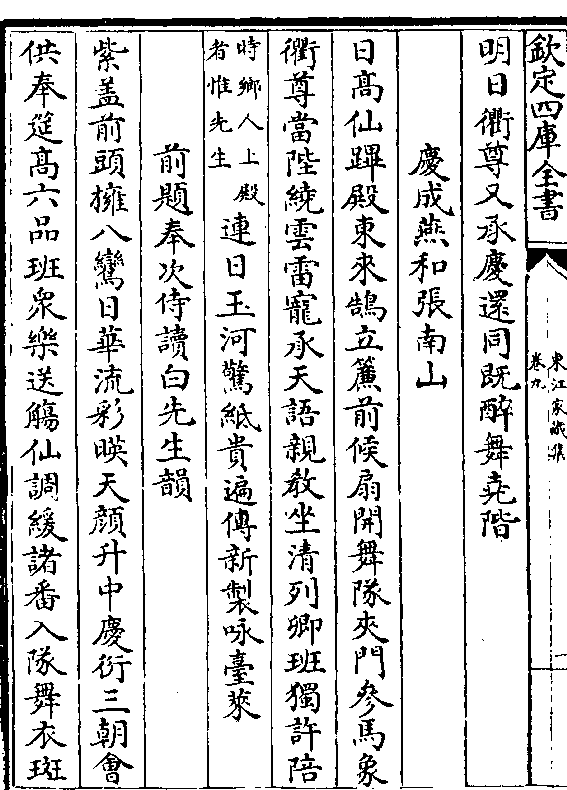 欽定四庫全書
東江家藏集
卷九
明日衢尊又承慶還同既醉舞堯階
慶成燕和張南山
日高仙蹕殿東來鵠立簾前候扇開舞隊夾門參馬象
衢尊當陛繞雲雷寵承天語親教坐清列卿班獨許陪
時鄉人上殿
者惟先生
連日玉河驚紙貴遍傳新製咏臺萊
前題奉次侍讀白先生韻
紫蓋前頭擁八鸞日華流彩暎天顔升中慶衍三朝會
供奉筵高六品班衆樂送觴仙調緩諸番入隊舞衣斑